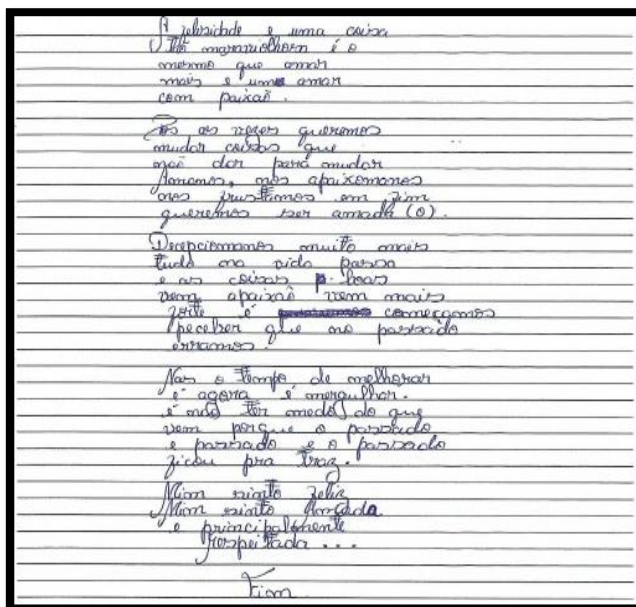 A felicidade e uma coisa
Tão maravilhosa é o
mesmo que amar
mais e uma amar
com paixaõ.
Pos as vezes queremos
mudar coisas que
naõ dar pará mudar
Amamos, nos apaixomanos
nos frustamos em fim
queremos ser amada (o).
Decepcionamos muito mais
tudo na vida passa
e as coisas boas
vem, apaixaõ vem mais
forte é começamos
peceber que no passado
erramos.
Nas o tempo de melhorar
é agora é mergulhar.
é naõ ter medo do que
vem porque o passado
e passado e o passado
ficou pra traz.
Mim sinto feliz
Mim sinto Amada
e principalmente
Respeitada ...
Fim